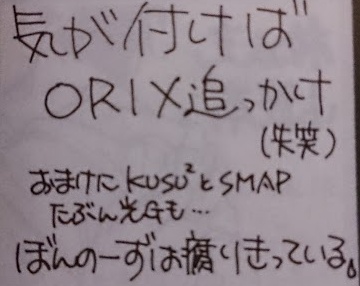 気が付けば
ORIX追っかけ
(失笑)
おまけにKUSU²とSMAP
たぶん光Gも…
ぼんのーずは腐りきっている。